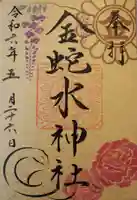 奉拝
金蛇水神社
令和六年五月二十六日